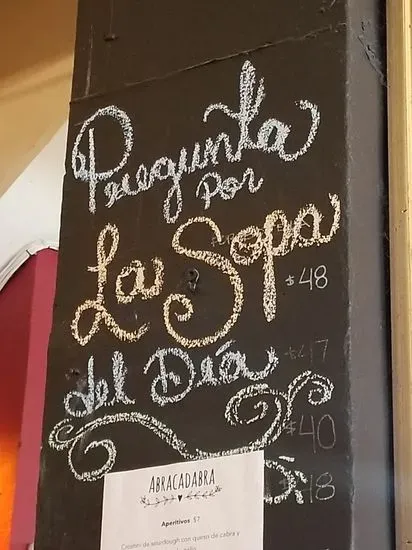 Pregunta
por
La Sopa
$48
del Día
$47
$40
$18
ABRACADABRA
Aperitivos $7
Crostini de sourdough con queso de cabra y